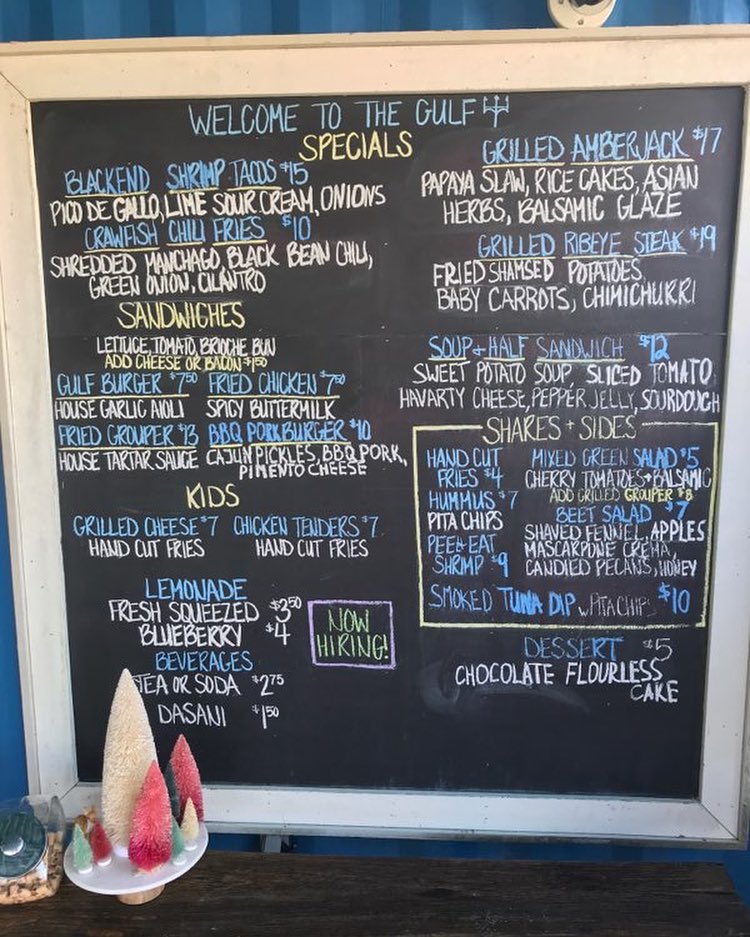 WELCOME TO THE GULF
SPECIALS
BLACKEND SHRIMP TACOS $15
PICO DE GALLO, LIME SOUR CREAM, ONIONS
CRAWFISH CHILI FRIES $10
SHREDDED MANCHAGO, BLACK BEAN CHILI,
GREEN ONION, CILANTRO
GRILLED AMBERJACK $17
PAPAYA SLAW, RICE CAKES, ASIAN
HERBS, BALSAMIC GLAZE
GRILLED RIBEYE STEAK $19
FRIED SHAMSED POTATOES
BABY CARROTS, CHIMICHURRI
SANDWICHES
LETTUCE, TOMATO, BRIOCHE BUN
ADD CHEESE OR BACON $1.50
GULF BURGER $7.50
HOUSE GARLIC AIOLI
FRIED CHICKEN $7.50
SPICY BUTTERMILK
FRIED GROUPER $13
HOUSE TARTAR SAUCE
BBQ PORK BURGER $10
CAJUN PICKLES, BBQ PORK,
PIMENTO CHEESE
KIDS
GRILLED CHEESE $7
HAND CUT FRIES
CHICKEN TENDERS $7
HAND CUT FRIES
LEMONADE
FRESH SQUEEZED $3.50
BLUEBERRY $4
BEVERAGES
TEA OR SODA $2.75
DASANI $1.50
NOW
HIRING!
SOUP + HALF SANDWICH $12
SWEET POTATO SOUP, SLICED TOMATO
HAVARTY CHEESE, PEPPER JELLY, SOURDOUGH
SHARES + SIDES
HAND CUT
FRIES $4
HUMMUS $7
PITA CHIPS
PEEL + EAT
SHRIMP $9
MIXED GREEN SALAD $5
CHERRY TOMATOES + BALSAMIC
ADD GRILLED GROUPER $8
BEET SALAD $7
SHAVED FENNEL, APPLES
MASCARPONE CREMA,
CANDIED PECANS, HONEY
SMOKED TUNA DIP w/ PITA CHIPS $10
DESSERT $5
CHOCOLATE FLOURLESS
CAKE